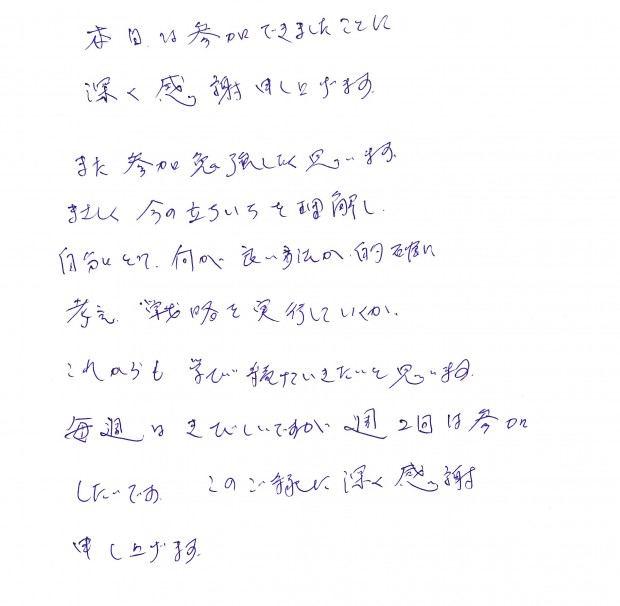 本日は参加できましたことに
深く感謝申し上げます。
また参加勉強したく思います。
まさしく今の立ちいちを理解し、
自分にとって、何が良い方法か、的確に
考え、戦略を実行していくか、
これからも学び続けていきたいと思います。
毎週はきびしいですが週2回は参加
したいです。このご縁に深く感謝
申し上げます。